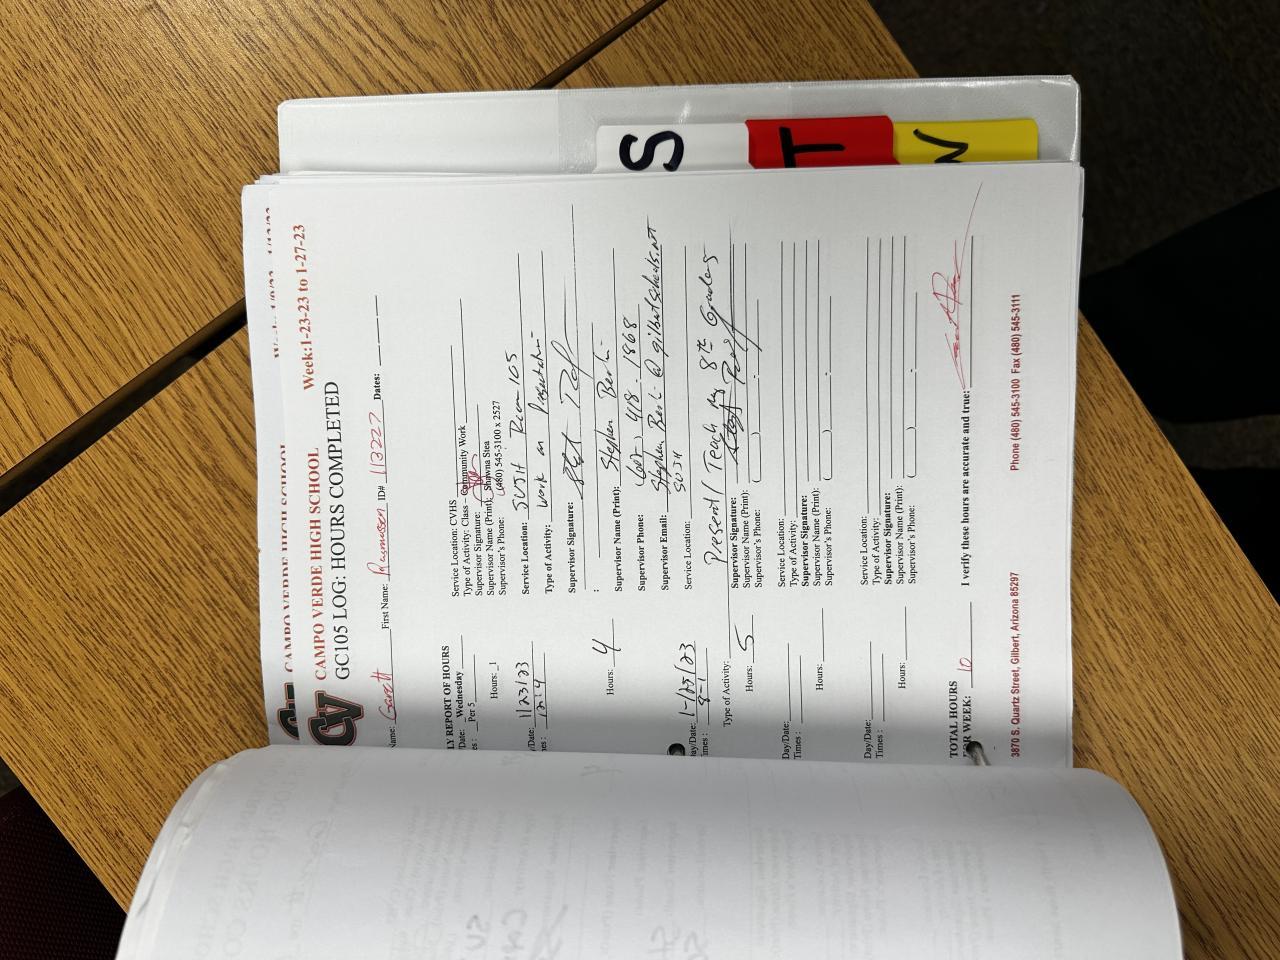 S
T
W
CAMPO VERDE HIGH SCHOOL
CV
CAMPO VERDE HIGH SCHOOL Week:1-23-23 to 1-27-23
GC105 LOG: HOURS COMPLETED
Name: Garett First Name: Rasmussen ID# 113227 Dates:
LY REPORT OF HOURS
Date: Wednesday Service Location: CVHS
es : Per 5 Type of Activity: Class – Community Work
Supervisor Signature:
Hours: 1 Supervisor Name (Print): Shawna Stea
Supervisor's Phone: (480) 545-3100 x 2527
/Date: 1/23/23 Service Location: SVJH Room 105
es : 12:4 Type of Activity: work on Presentation
Supervisor Signature:
:
Hours: 4 Supervisor Name (Print): Stephen Berlin
Supervisor Phone: 418-1868
Supervisor Email: Stephen.Berlin@gilbertschools.net
ay/Date: 1-/25/23 Service Location: SVJH
imes : 8-1
Type of Activity: Present/Teach my 8th Graders
Supervisor Signature:
Hours: 5 Supervisor Name (Print):
Supervisor's Phone: ( ) -
Day/Date: Service Location:
Times : Type of Activity:
Supervisor Signature:
Hours: Supervisor Name (Print):
Supervisor's Phone: ( ) -
Day/Date: Service Location:
Times : Type of Activity:
Supervisor Signature:
Hours: Supervisor Name (Print):
Supervisor's Phone: ( ) -
TOTAL HOURS
FOR WEEK: 10 I verify these hours are accurate and true:
3870 S. Quartz Street, Gilbert, Arizona 85297 Phone (480) 545-3100 Fax (480) 545-3111